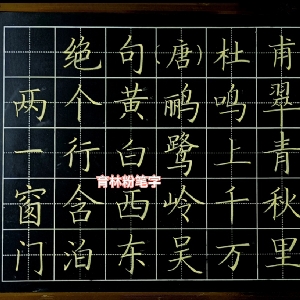 绝句(唐)杜甫
两个黄鹂鸣翠
一行白鹭上青
育林粉笔字
窗含西岭千秋
门泊东吴万里